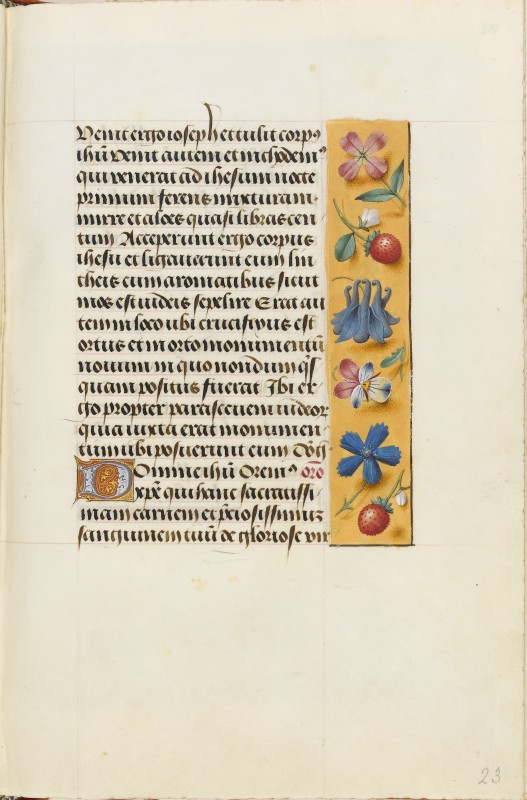 Venit ergo ioseph et tulit corpꝰ
ihũ venit autem et nichodemꝰ
qui venerat ad ihesum nocte
primum ferens mixturam
mirre et aloes quasi libras cen
tum Acceperunt ergo corpus
ihesu et ligauerunt eum lin
theis cum aromatibus sicut
mos est iudeis sepelire Erat au
tem in loco ubi crucifixus est
ortus et in orto monumentũ
nouum in quo nondum qͥs
quam positus fuerat Ibi er
go propter parasceuem iudeor
quia iuxta erat monumen
tum ibi posuerunt eum
Domine ihũ Oremꝰ oro
xp̃e qui hanc sacratissi
mam carnem et p̃ciosissimum
sanguinem tuũ de gloriose vir
23